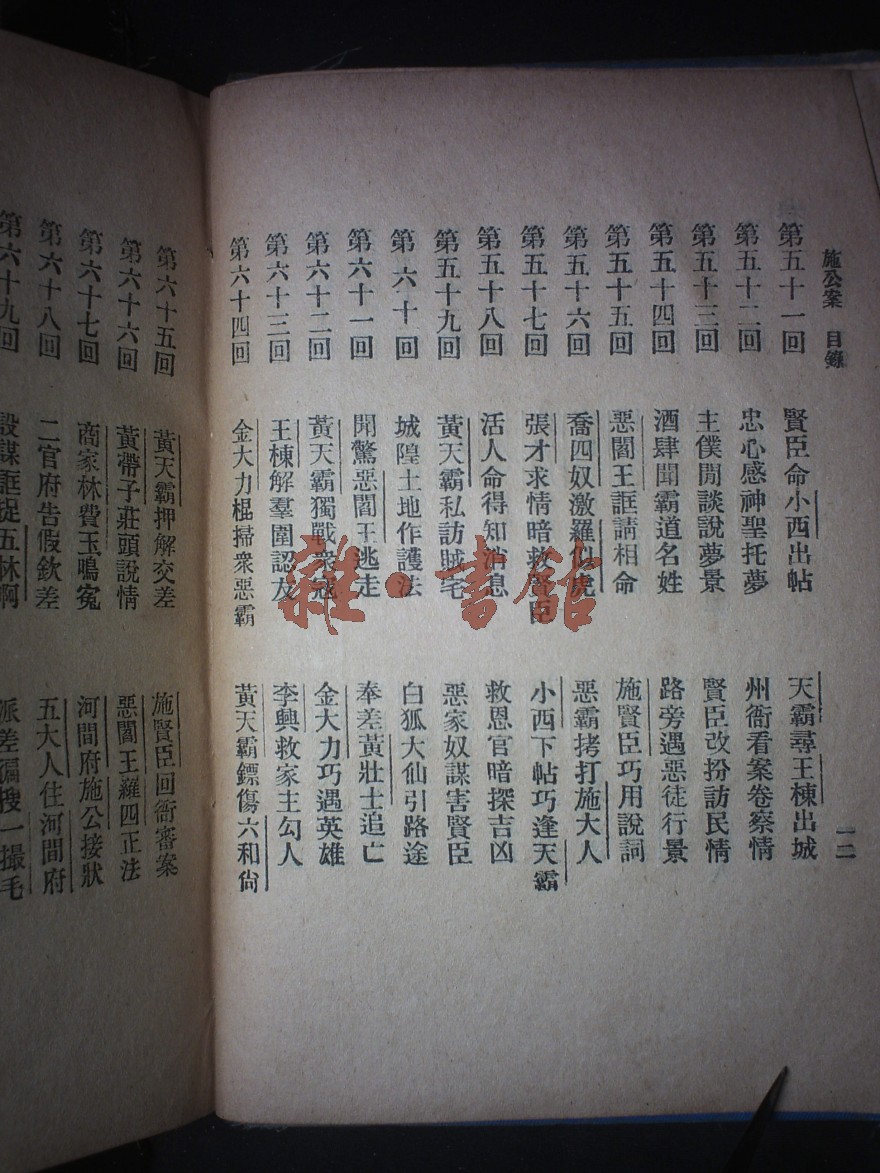 施公案　目錄
一二
第五十一回　賢臣命小西出帖　天霸尋王棟出城
第五十二回　忠心感神聖托夢　州衙看案卷察情
第五十三回　主僕閒談說夢景　賢臣改扮訪民情
第五十四回　酒肆聞霸道名姓　路旁遇惡徒行景
第五十五回　惡閻王誆請相命　施賢臣巧用說詞
第五十六回　喬四奴激羅似虎　惡霸拷打施大人
第五十七回　張才求情暗救賢臣　小西下帖巧逢天霸
第五十八回　活人命得知消息　救恩官暗探吉凶
第五十九回　黃天霸私訪賊宅　惡家奴謀害賢臣
第六十回　城隍土地作護法　白狐大仙引路途
第六十一回　聞驚惡閻王逃走　奉差黃壯士追亡
第六十二回　黃天霸獨戰衆寇　金大力巧遇英雄
第六十三回　王棟解羣圍認友　李興救家主勾人
第六十四回　金大力棍掃衆惡霸　黃天霸鏢傷六和尙
第六十五回　黃天霸押解交差　施賢臣回衙審案
第六十六回　黃帶子莊頭說情　惡閻王羅四正法
第六十七回　商家林費玉鳴寃　河間府施公接狀
第六十八回　二官府告假欽差　五大人住河間府
第六十九回　設謀誆捉五林啊　派差徧搜一撮毛
雜·書館